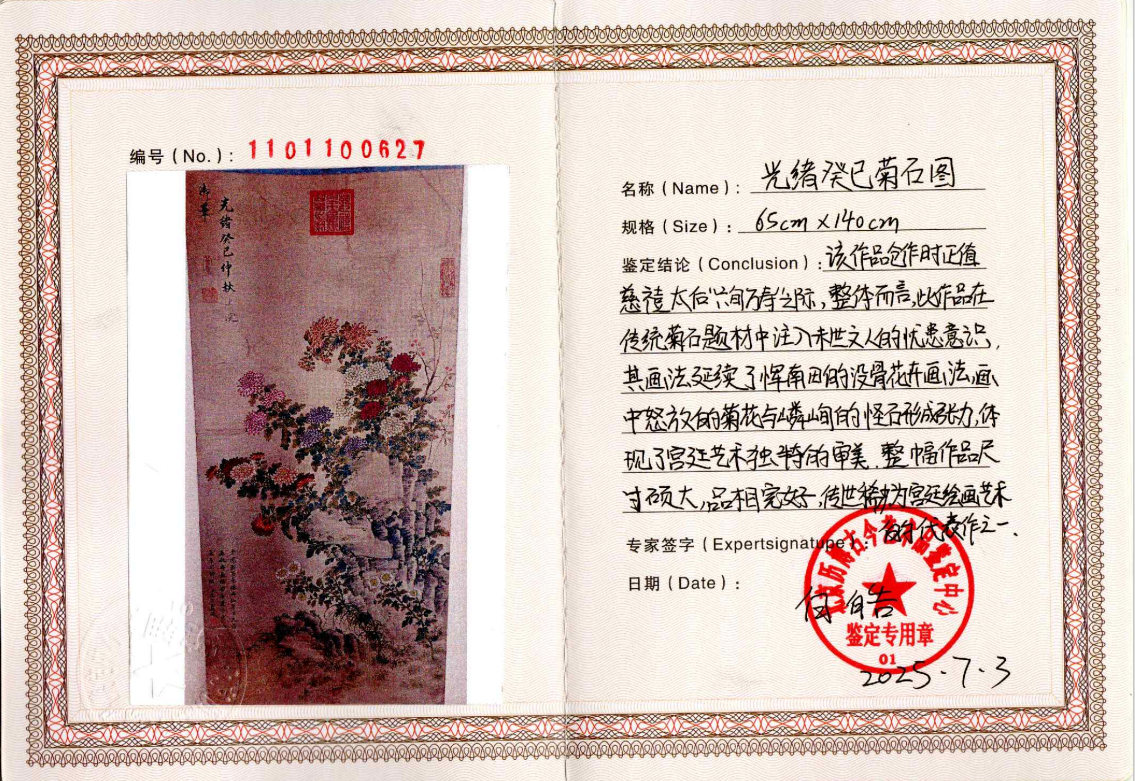 编号(No.): 1101100627
御筆
光緒癸巳仲秋上浣
名称(Name): 光绪癸巳菊石图
规格(Size): 65cm×140cm
鉴定结论(Conclusion): 该作品创作时正值
慈禧太后六旬万寿之际,整体而言,此作品在
传统菊石题材中注入末世文人的忧患意识,
其画法延续了恽南田的没骨花卉画法,画
中怒放的菊花与嶙峋的怪石形成张力,体
现了宫廷艺术独特的审美.整幅作品尺
寸硕大,品相完好,传世稀少,为宫廷绘画艺术
代表作之一.
专家签字(Expertsignatupe):
日期(Date):
鉴定中心
鉴定专用章
01
2025.7.3